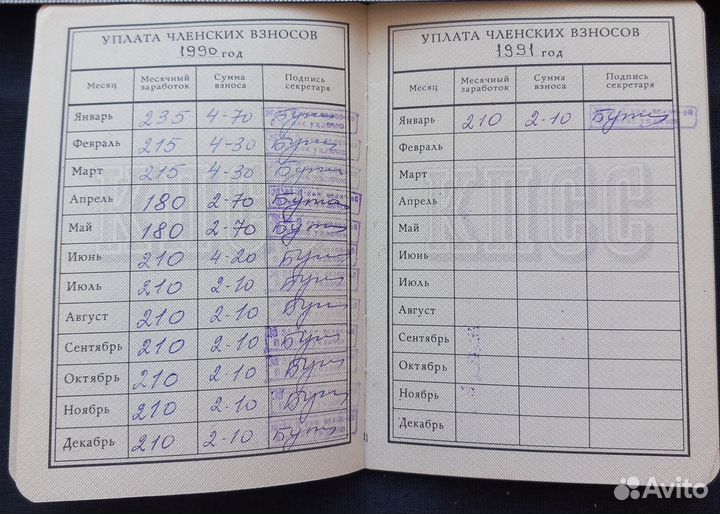 УПЛАТА ЧЛЕНСКИХ ВЗНОСОВ
1990 год
Месяц Месячный заработок Сумма взноса Подпись секретаря
Январь 235 4-70
Февраль 215 4-30
Март 215 4-30
Апрель 180 2-70
Май 180 2-70
Июнь 210 4-20
Июль 210 2-10
Август 210 2-10
Сентябрь 210 2-10
Октябрь 210 2-10
Ноябрь 210 2-10
Декабрь 210 2-10
КПСС
УПЛАТА ЧЛЕНСКИХ ВЗНОСОВ
1991 год
Месяц Месячный заработок Сумма взноса Подпись секретаря
Январь 210 2-10
Февраль
Март
Апрель
Май
Июнь
Июль
Август
Сентябрь
Октябрь
Ноябрь
Декабрь
КПСС
Avito